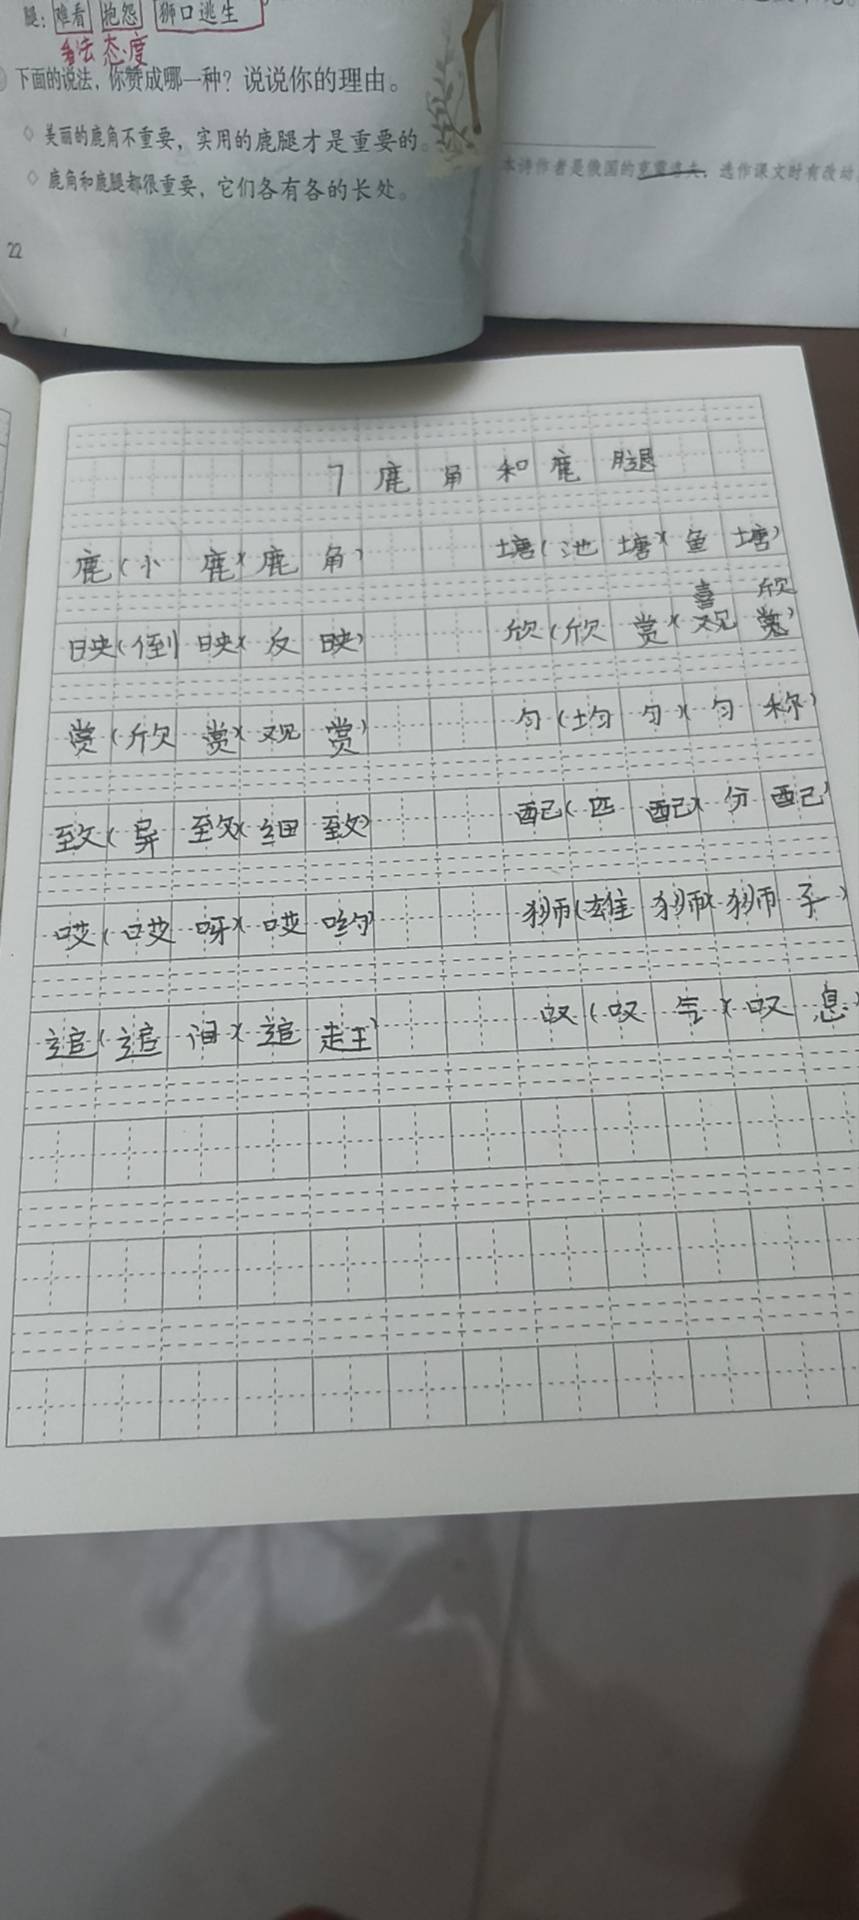 腿：难看 抱怨 狮口逃生
看法 态度
下面的说法，你赞成哪一种？说说你的理由。
◇ 美丽的鹿角不重要，实用的鹿腿才是重要的。
◇ 鹿角和鹿腿都很重要，它们各有各的长处。
22
本诗作者是俄国的，选作课文时有改动
7 鹿角和鹿腿
鹿（小鹿）（鹿角） 塘（池塘）（鱼塘）
喜欣
映（倒映）（反映） 欣（欣赏）（观赏）
赏（欣赏）（观赏） 匀（均匀）（匀称）
致（异致）（细致） 配（匹配）（分配）
哎（哎呀）（哎哟） 狮（雄狮）（狮子）
追（追问）（追赶） 叹（叹气）（叹息）